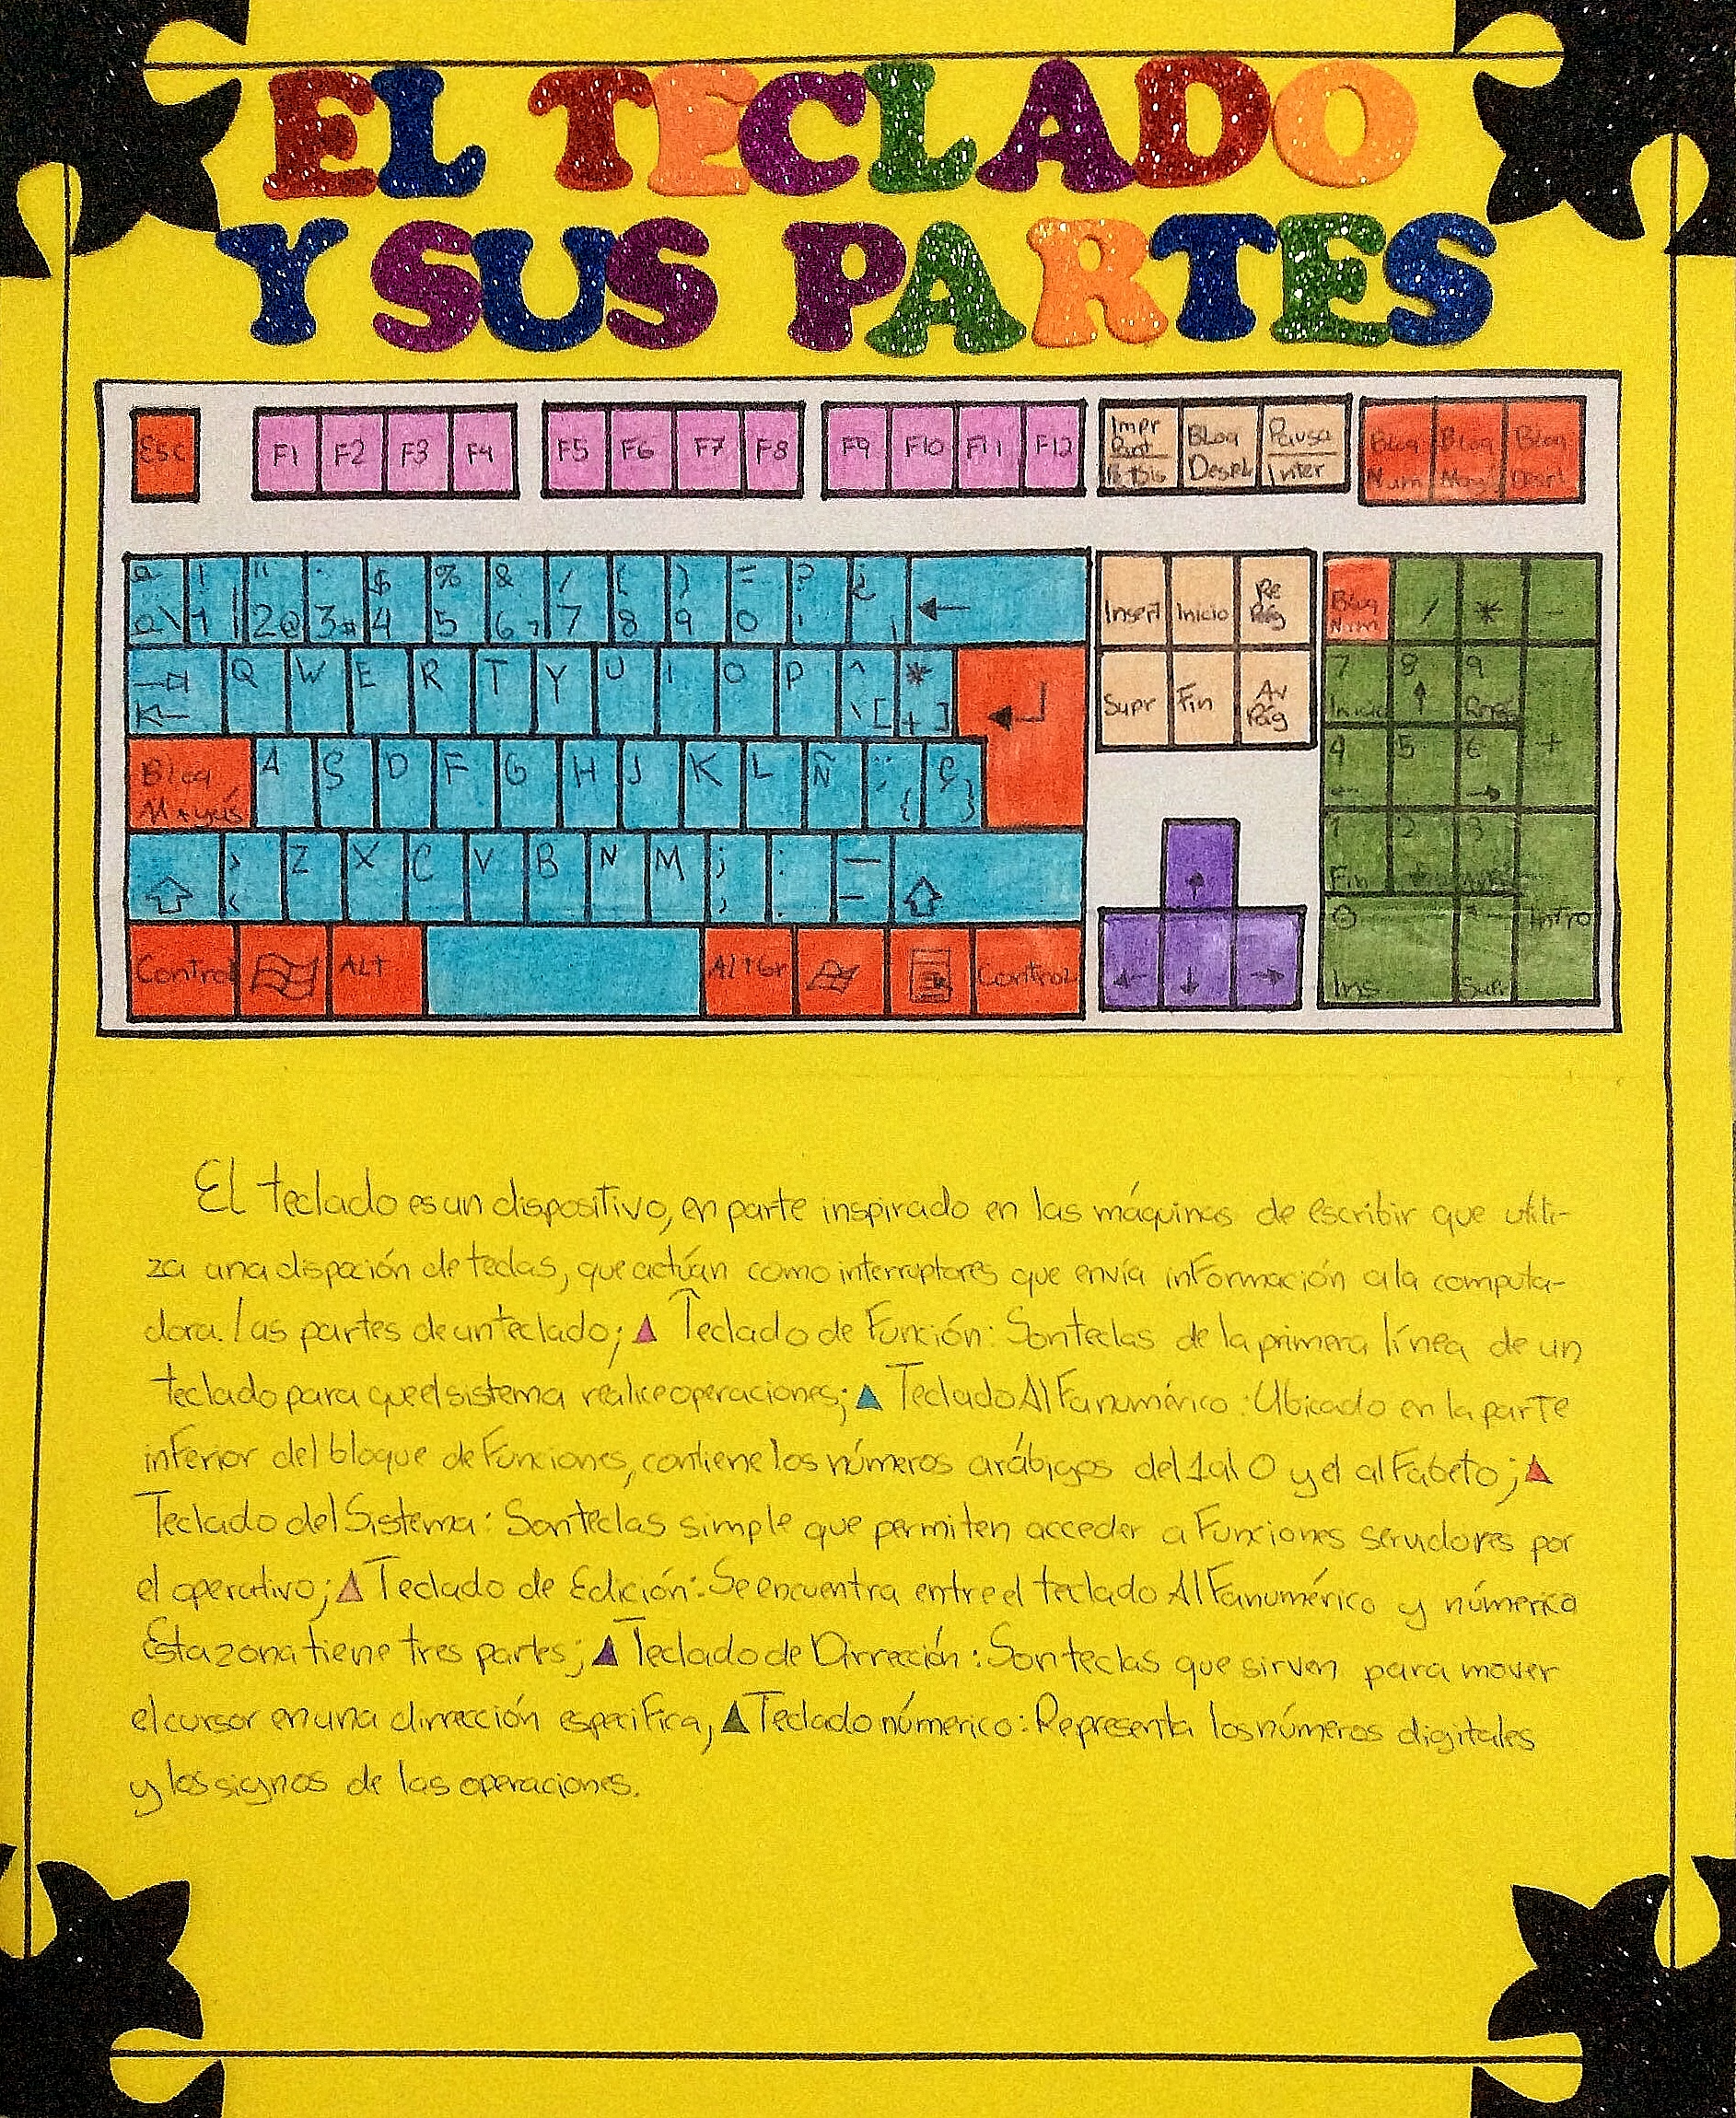 EL TECLADO
Y SUS PARTES
Esc F1 F2 F3 F4 F5 F6 F7 F8 F9 F10 F11 F12 Impr Pant Bloq Despl Pausa Inter Bloq Num Bloq Bloq
! " · $ % & / ( ) = ? ¿
1 | 2@ 3# 4 5 6 7 8 9 0 ' ¡ Insert Inicio Re Pág Bloq Num / * -
Q W E R T Y U I O P ^ * ` [ + ] Supr Fin Av Pág 7 Inicio 8 9
Bloq Mayús A S D F G H J K L Ñ ¨ ´ { Ç } 4 5 6 +
> < Z X C V B N M ; , : . 1 Fin 2 3
Control ALT ALTGr Control 0 Ins Supr Intro
El teclado es un dispositivo, en parte inspirado en las máquinas de escribir que utili-
za una dispoción de teclas, que actúan como interruptores que envía información a la computa-
dora. Las partes de un teclado; Teclado de Función: Son teclas de la primera línea de un
teclado para que el sistema realice operaciones; Teclado Alfanumérico: Ubicado en la parte
inferior del bloque de funciones, contiene los números arábigos del 1 al 0 y el alfabeto;
Teclado del Sistema: Son teclas simple que permiten acceder a funciones por
el operativo; Teclado de Edición: Se encuentra entre el teclado Alfanumérico y númerico
Esta zona tiene tres partes; Teclado de Dirrección: Son teclas que sirven para mover
el cursor en una dirrección especifica, Teclado númerico: Representa los números digitales
y los signos de las operaciones.